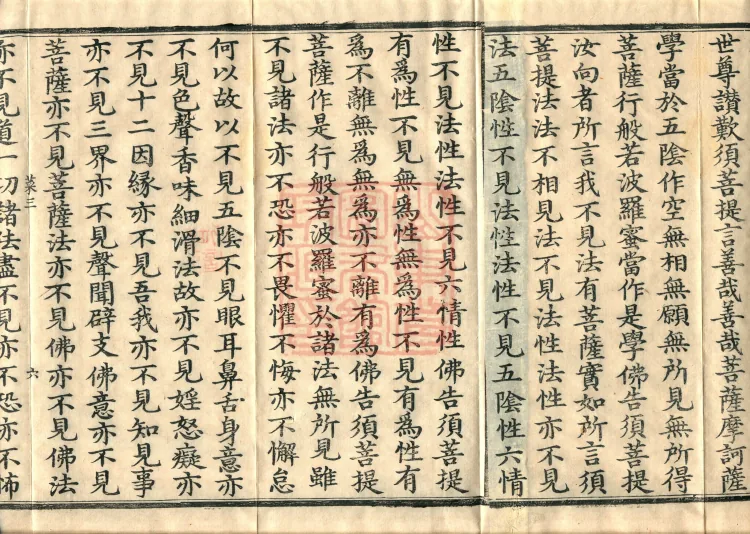 世尊讚歎須菩提言善哉善哉菩薩摩訶薩
學當於五陰作空無相無願無所見無所得
菩薩行般若波羅蜜當作是學佛告須菩提
汝向者所言我不見法有菩薩實如所言須
菩提法法不相見法不見法性法性亦不見
法五陰性不見法性法性不見五陰性六情
性不見法性法性不見六情性佛告須菩提
有為性不見無為性無為性不見有為性有
為不離無為無為亦不離有為佛告須菩提
菩薩作是行般若波羅蜜於諸法無所見雖
不見諸法亦不恐亦不畏懼不悔亦不懈怠
何以故以不見五陰不見眼耳鼻舌身意亦
不見色聲香味細滑法故亦不見婬怒癡亦
不見十二因緣亦不見吾我亦不見知見事
亦不見三界亦不見聲聞辟支佛意亦不見
菩薩亦不見菩薩法亦不見佛亦不見佛法
菜三 六
亦不見道一切諸法盡不見亦不恐亦不怖